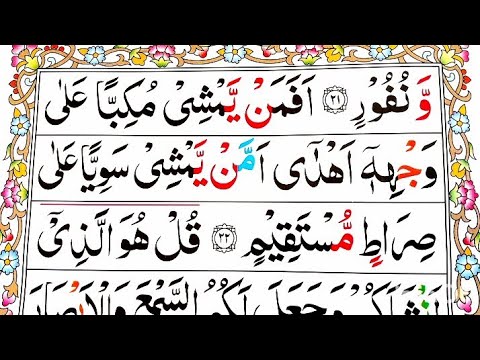 وَّ نُفُوْرٍ ۝۲۱ اَفَمَنْ يَّمْشِىْ مُكِبًّا عَلٰى
وَجْهِهٖۤ اَهْدٰٓى اَمَّنْ يَّمْشِىْ سَوِيًّا عَلٰى
صِرَاطٍ مُّسْتَقِيْمٍ ۝۲۲ قُلْ هُوَ الَّذِىْۤ
اَنْشَاَكُمْ وَجَعَلَ لَكُمُ السَّمْعَ وَالْاَبْصَارَ